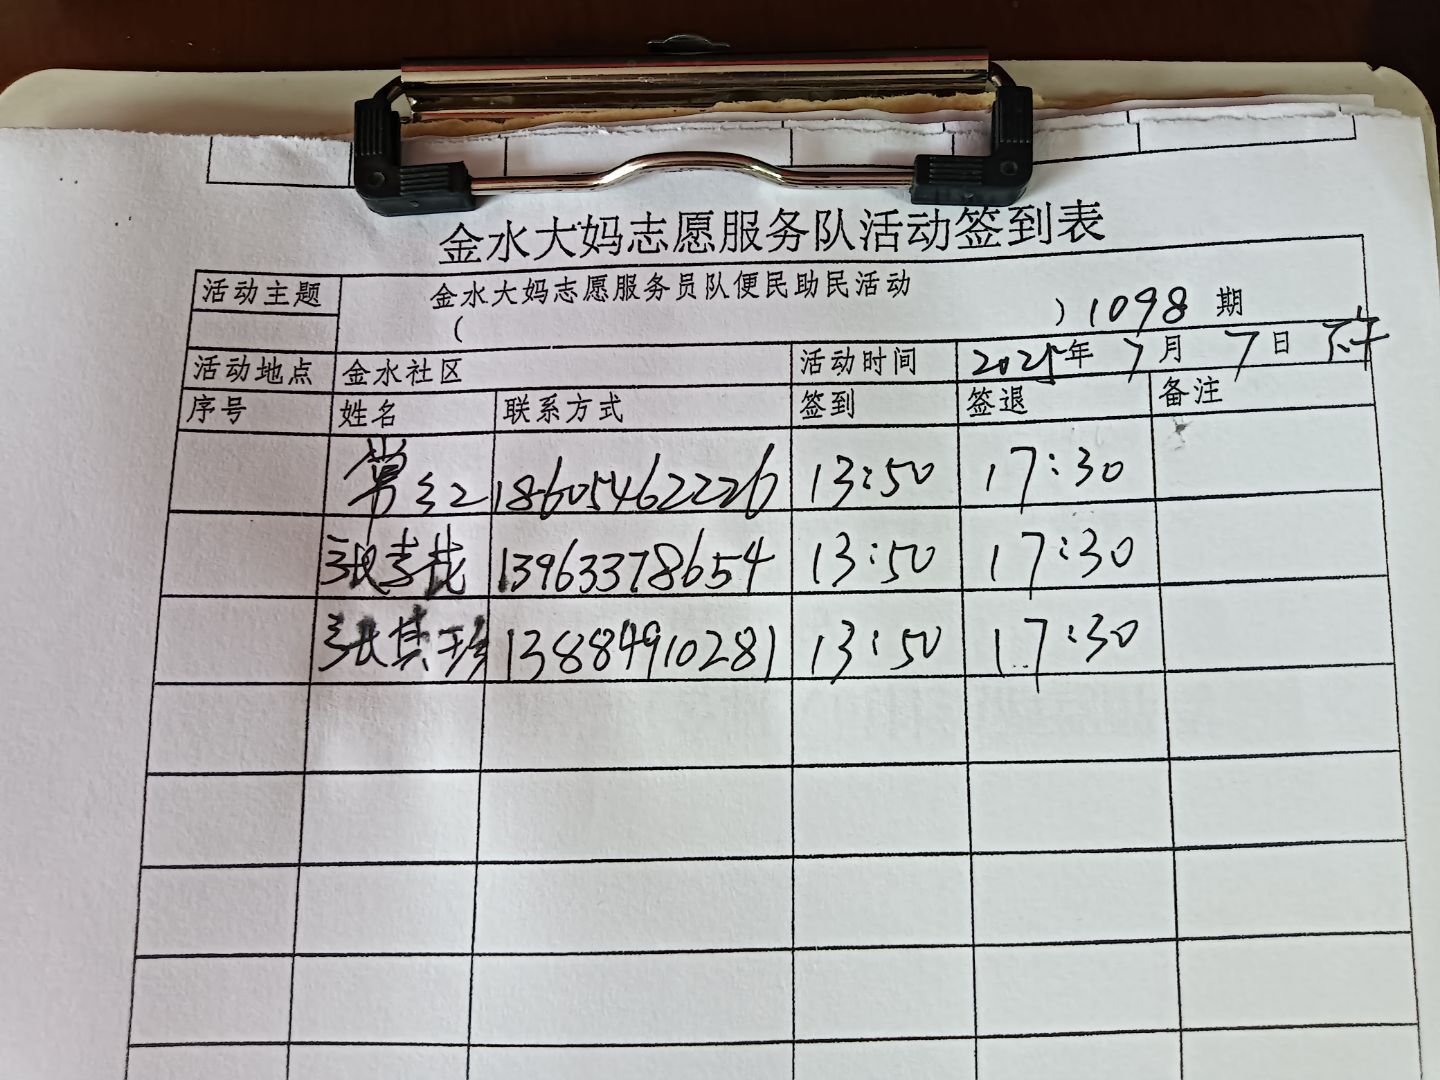 金水大妈志愿服务队活动签到表
活动主题 金水大妈志愿服务员队便民助民活动
( ) 1098 期
活动地点 金水社区 活动时间 2025年 7月 7日 下午
序号 姓名 联系方式 签到 签退 备注
常红 18605462226 13:50 17:30
张孝 13963378654 13:50 17:30
张其珍 13884910281 13:50 17:30